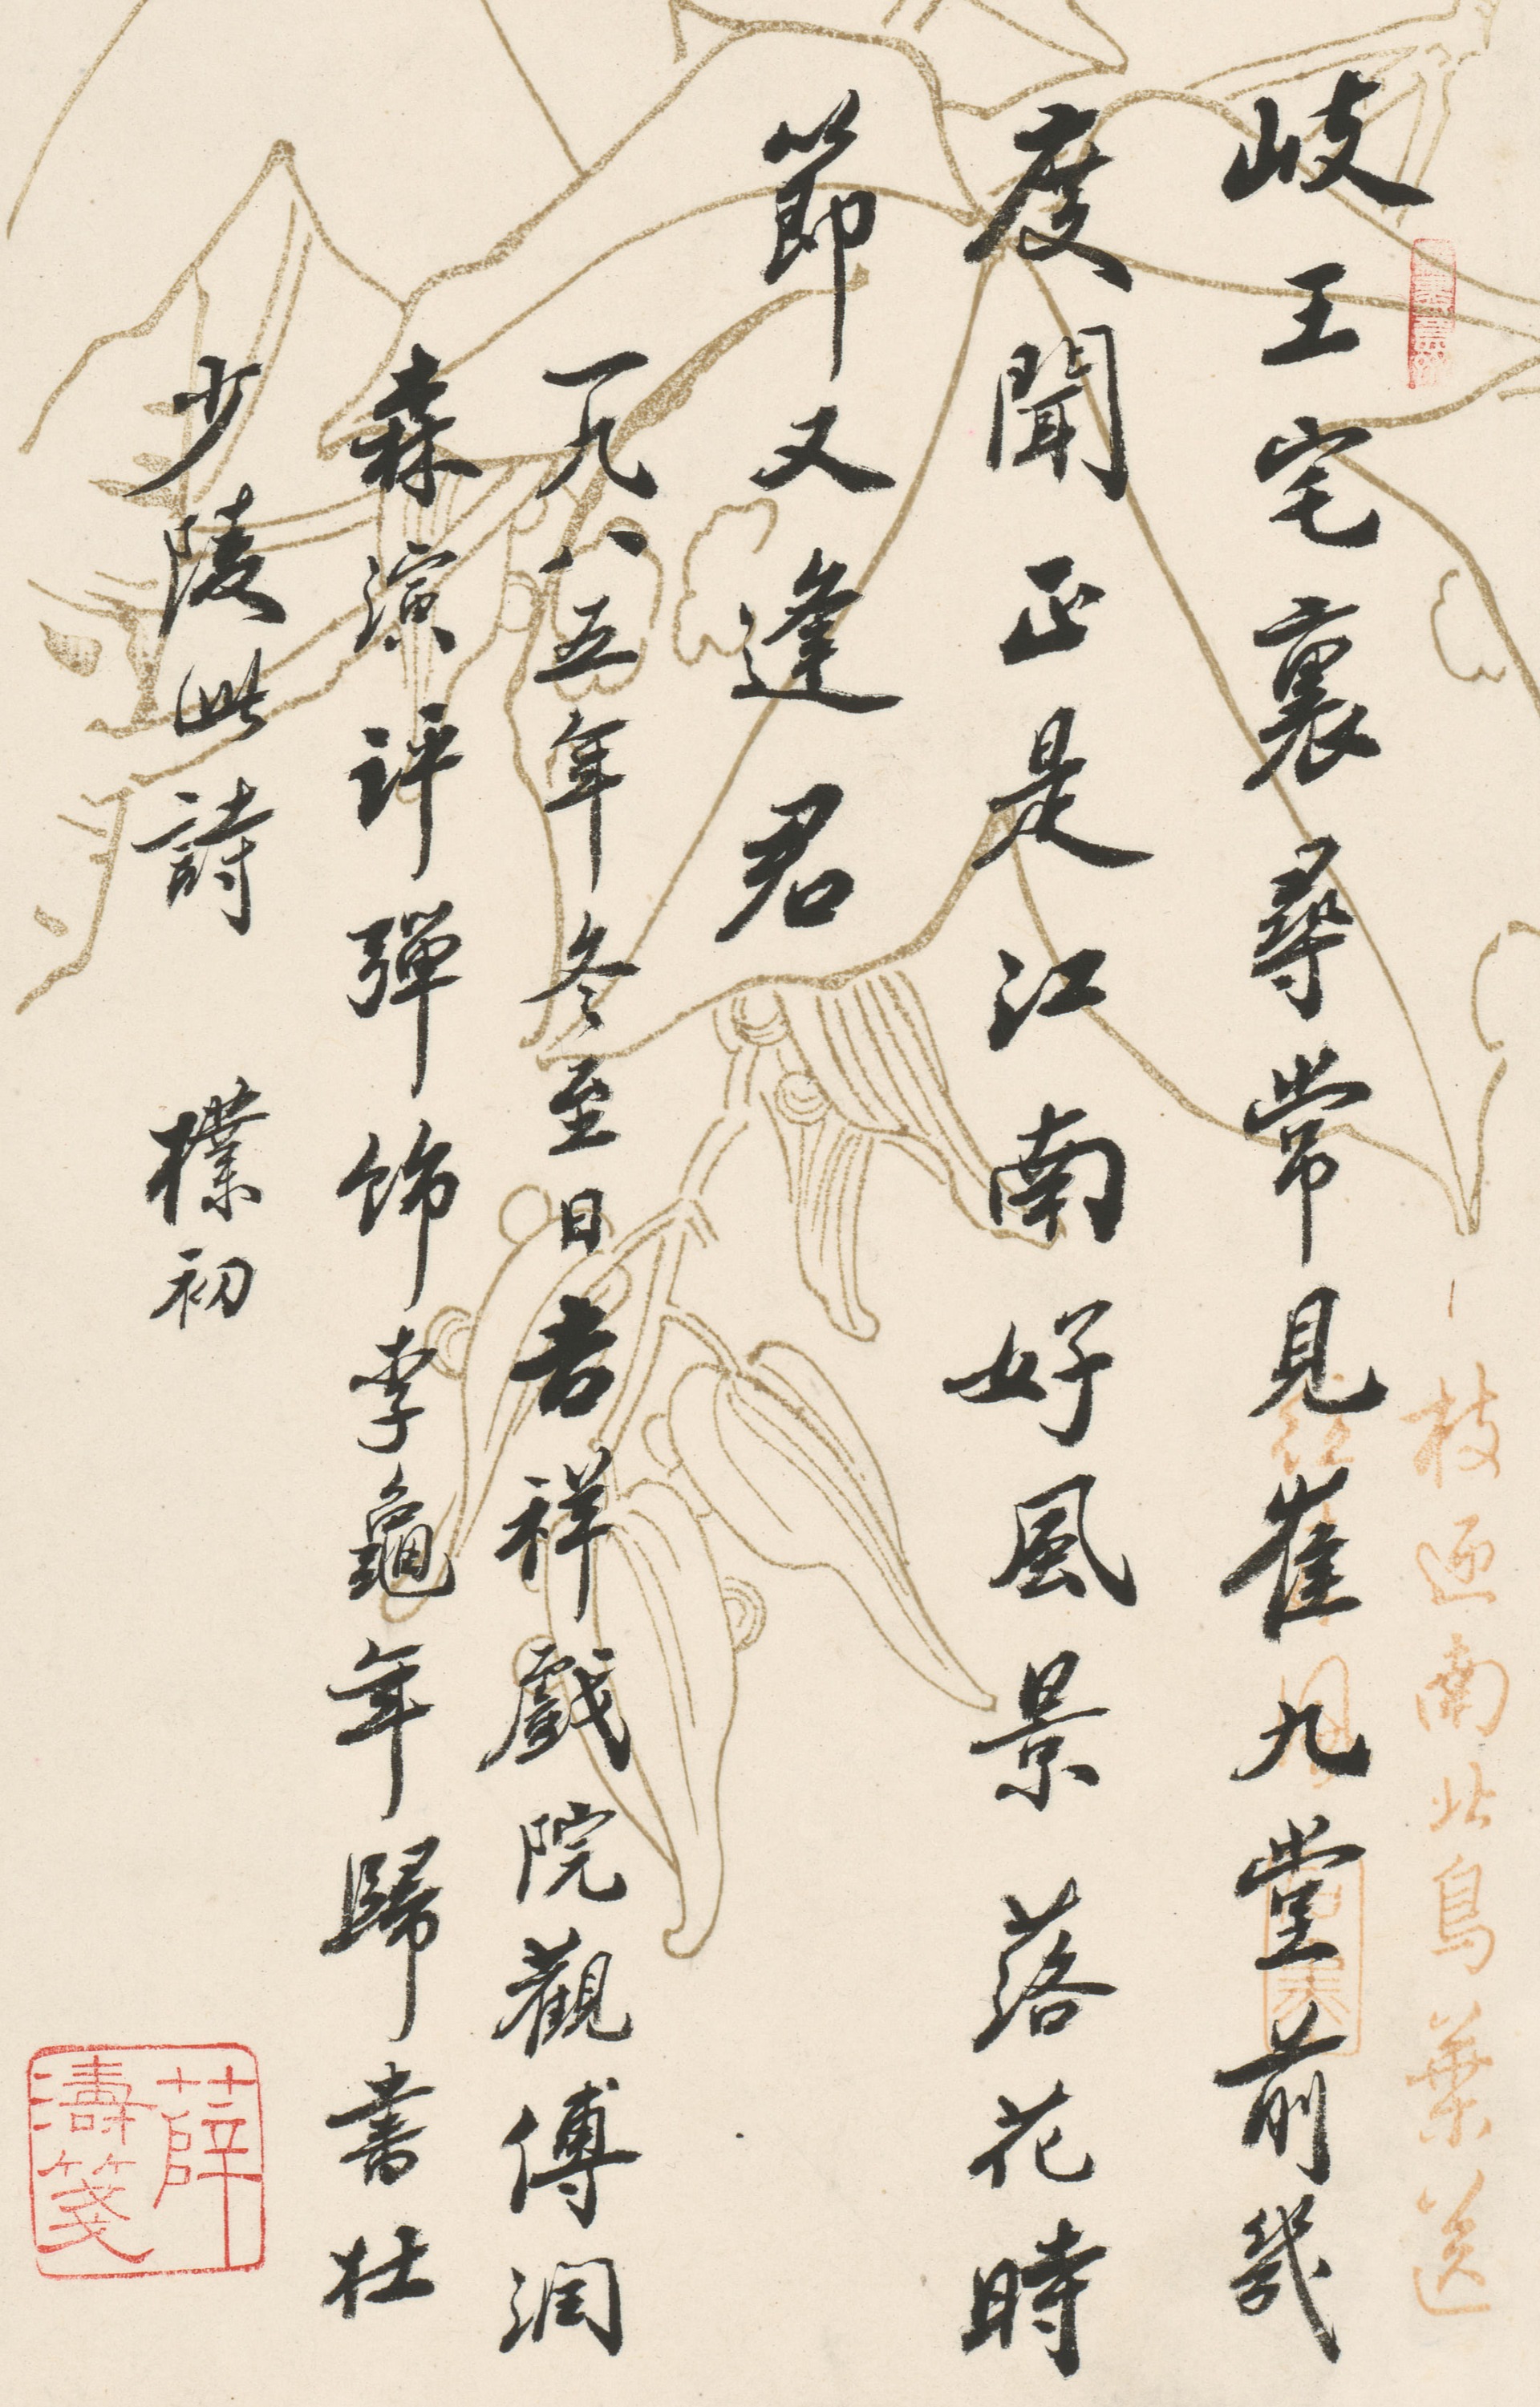 岐王宅裏尋常見崔九堂前幾
度聞正是江南好風景落花時
節又逢君
一九八五年冬至日吉祥戲院觀傅潤
森演評彈飾李龜年歸書杜
少陵此詩 樸初
枝迎南北鳥葉送
薛
濤箋